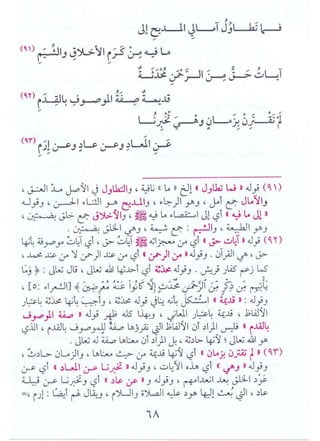 فما تطاول آمالي المديح إلى
ما فيه من كرم الأخلاق والشيم (٩١)
آيات حق من الرحمن محدثة
قديمة صفة الموصوف بالقدم (٩٢)
لم تقترن بزمان وهي تخبرنا
عن المعاد وعن عاد وعن إرم (٩٣)
(٩١) قوله «فما تطاول» إلخ «ما» نافية، والتطاول في الأصل مد العنق،
والآمال جمع أمل، وهو الرجاء، والمديح هو الثناء الحسن، وقوله
«إلى ما فيه» أي إلى استقصاء ما فيه ﷺ، والأخلاق جمع خلق بضمتين،
وهو الطبيعة، والشيم: جمع شيمة، وهي الخلق بضمتين.
(٩٢) قوله «آيات حق» أي من معجزاته ﷺ آيات حق، أي آيات موصوفة بأنها
حق، هي القرآن. وقوله «من الرحمن» أي من عند الرحمن لا من عند محمد،
كما زعم كفار قريش. وقوله محدثة أي أحدثها الله تعالى، قال تعالى: ﴿وَمَا
يَأْتِيهِم مِّن ذِكْرٍ مِّنَ الرَّحْمَٰنِ مُحْدَثٍ إِلَّا كَانُوا عَنْهُ مُعْرِضِينَ﴾ [الشعراء: ٥]،
وقوله: «قديمة» استشكل بأنه ينافي قوله محدثة، وأجيب بأنها محدثة باعتبار
الألفاظ، قديمة باعتبار المعاني، وبهذا كله ظهر قوله «صفة الموصوف
بالقدم» فليس المراد أن الألفاظ التي نقرؤها صفة للموصوف بالقدم، الذي
هو الله تعالى، لأنها حادثة، بل المراد أن معناها صفة له تعالى.
(٩٣) «لم تقترن بزمان» أي لأنها قديمة من حيث معناها، والزمان حادث،
وقوله «وهي» أي هذه الآيات، وقوله «تخبرنا عن المعاد» أي عن
عود الخلق بعد انعدامهم، وقوله و«عن عاد» أي وتخبرنا عن قبيلة
عاد، التي بعث إليها هود عليه الصلاة والسلام، ويقال لهم أيضا: إرم،=
٦٨